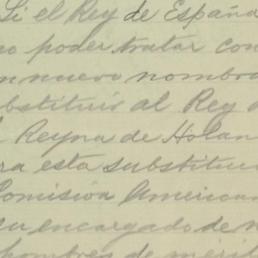 Si el Rey de España
no poder tratar con
un nuevo nombra
ubstituir al Rey d
Reyna de Holan
ra esta substitui
Comisión American
su encargado de n
hombres de mérit